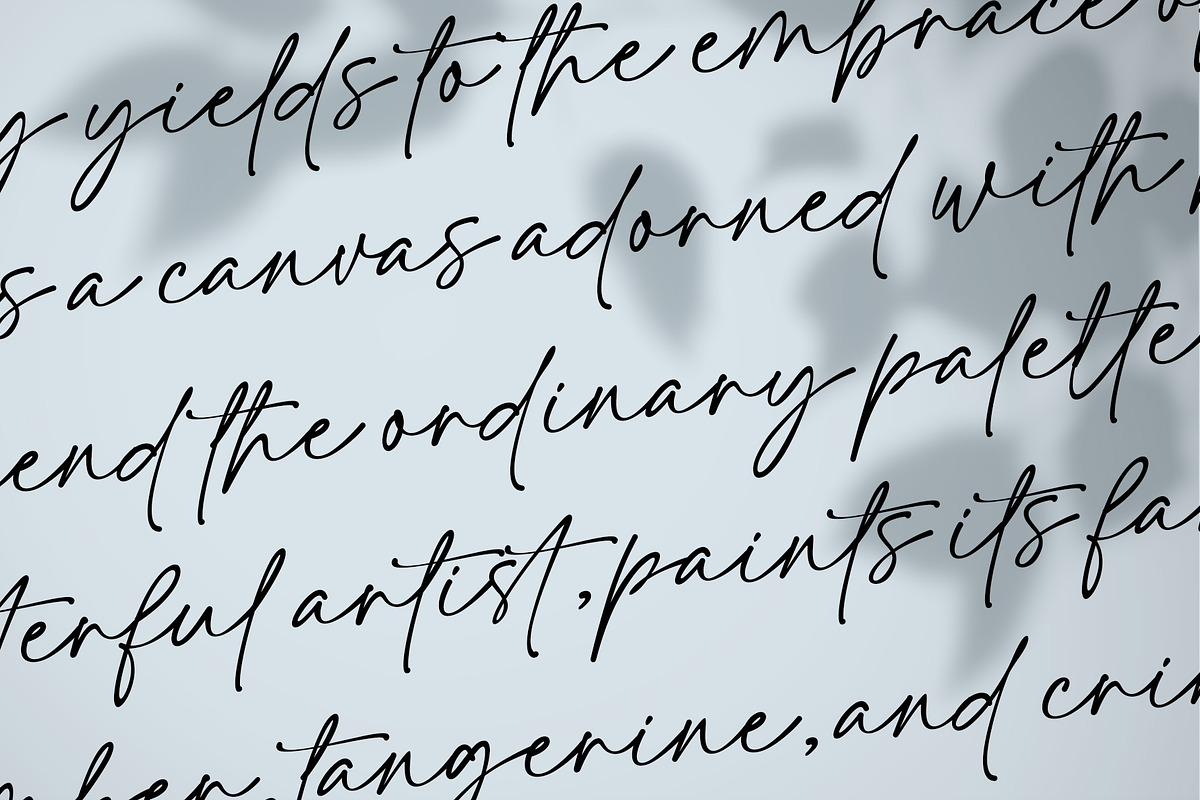 y yields to the embrace o
s a canvas adorned with
end the ordinary palette
terful artist, paints its fa
mber, tangerine, and crim